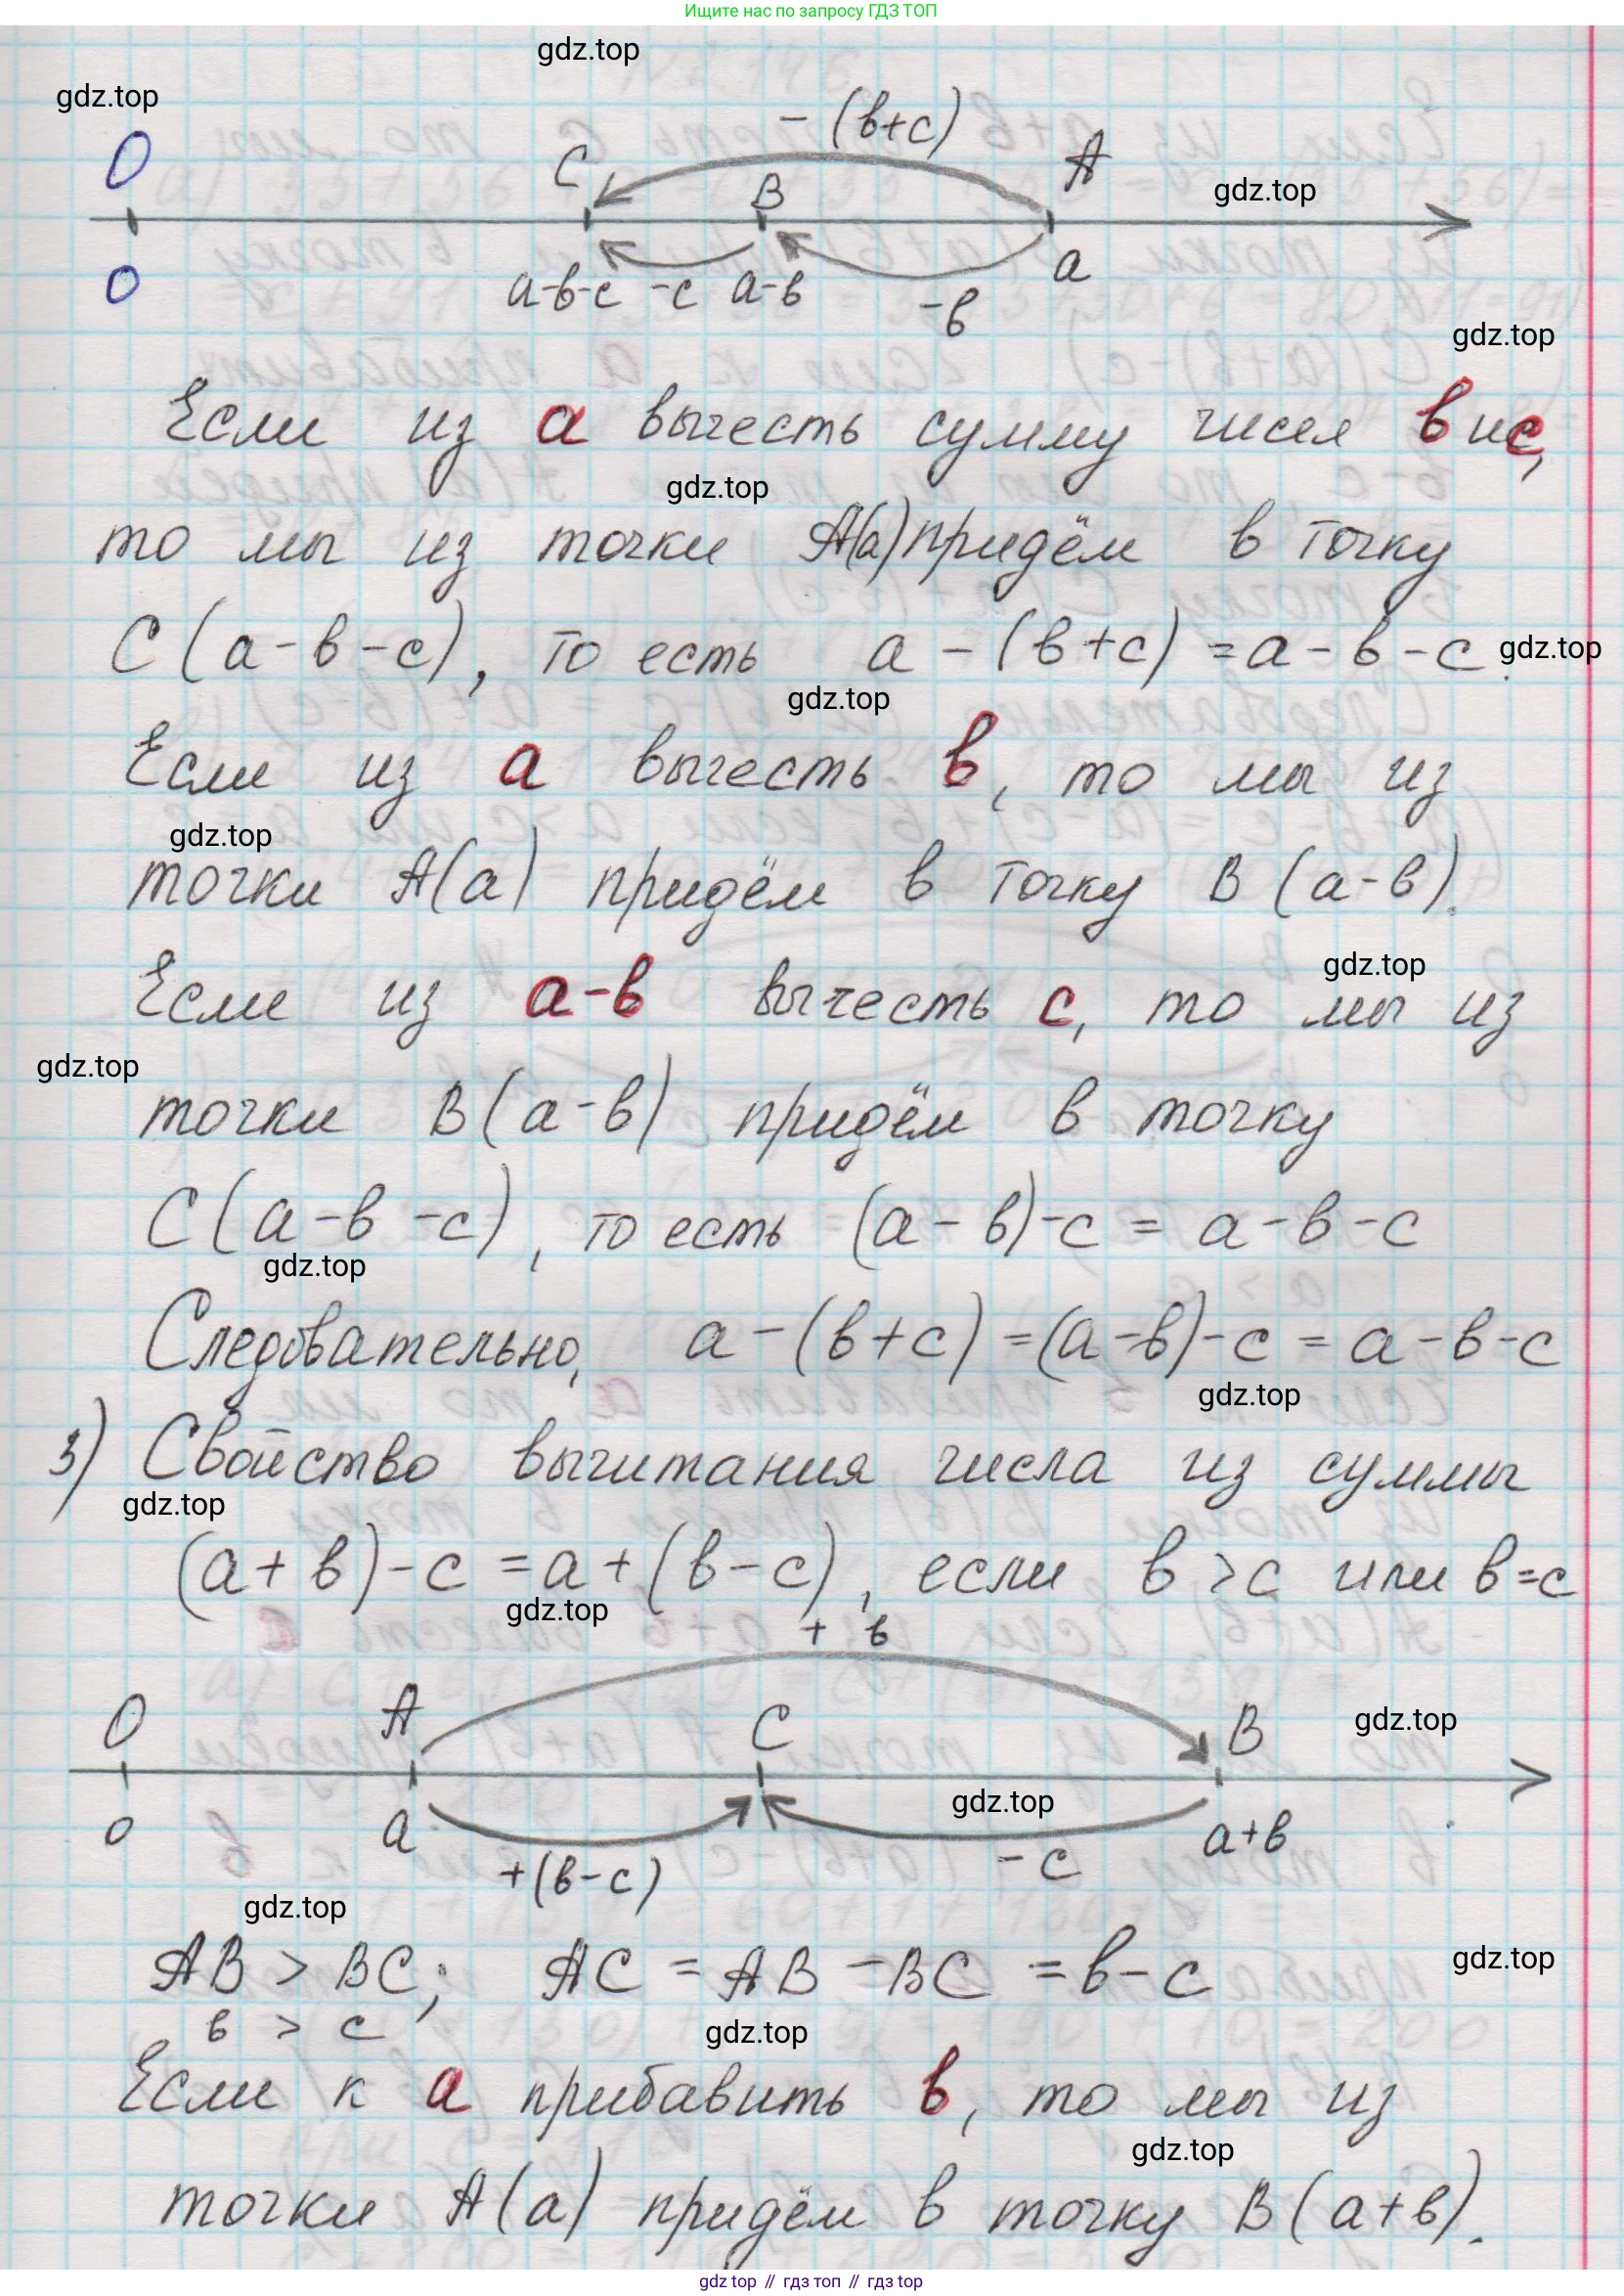 Ищите нас по запросу ГДЗ ТОП
gdz.top
gdz.top
- (в+с)
O C B A
gdz.top
0 a-в-с -с a-в -в a
gdz.top
Если из a вычесть сумму чисел в и с,
gdz.top
то мы из точки A(a) придём в точку
C (a-в-с), то есть a - (в+с) = a-в-с.
gdz.top
gdz.top
Если из a вычесть в, то мы из
gdz.top
точки A(a) придём в точку B (a-в).
gdz.top
Если из a-в вычесть с, то мы из
gdz.top
точки B(a-в) придём в точку
C(a-в-с), то есть (a-в)-с = a-в-с
gdz.top
Следовательно, a-(в+с)=(a-в)-с = a-в-с
gdz.top
3) Свойство вычитания числа из суммы
gdz.top
(a+в)-с = a+(в-с), если в > с или в=с
gdz.top
+ в
O A C B
gdz.top
gdz.top
0 a +(в-с) -с a+в
gdz.top
AB > BC; AC = AB - BC = в-с
gdz.top
в > с
gdz.top
Если к a прибавить в, то мы из
gdz.top
точки A(a) придём в точку B(a+в).
gdz top // гдз топ // гдз top